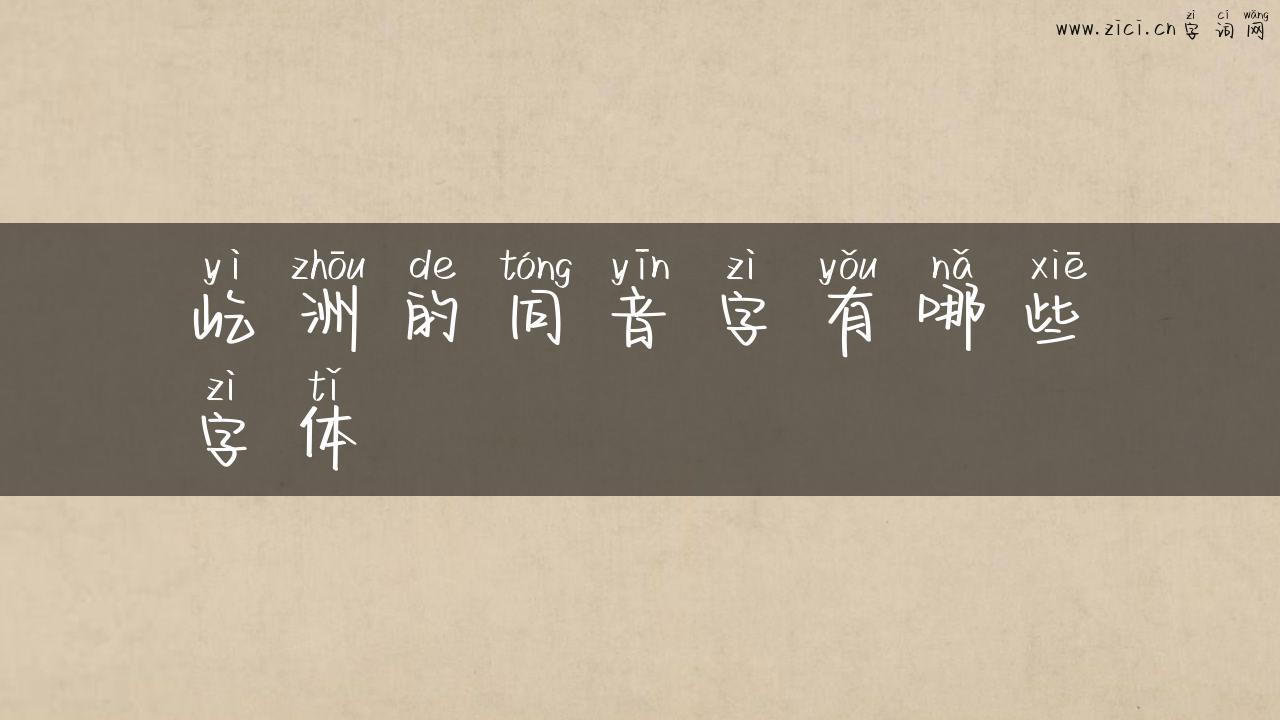 zì cí wǎng
www.zici.cn字词网
yì zhōu de tóng yīn zì yǒu nǎ xiē
屹洲的同音字有哪些
zì tǐ
字体